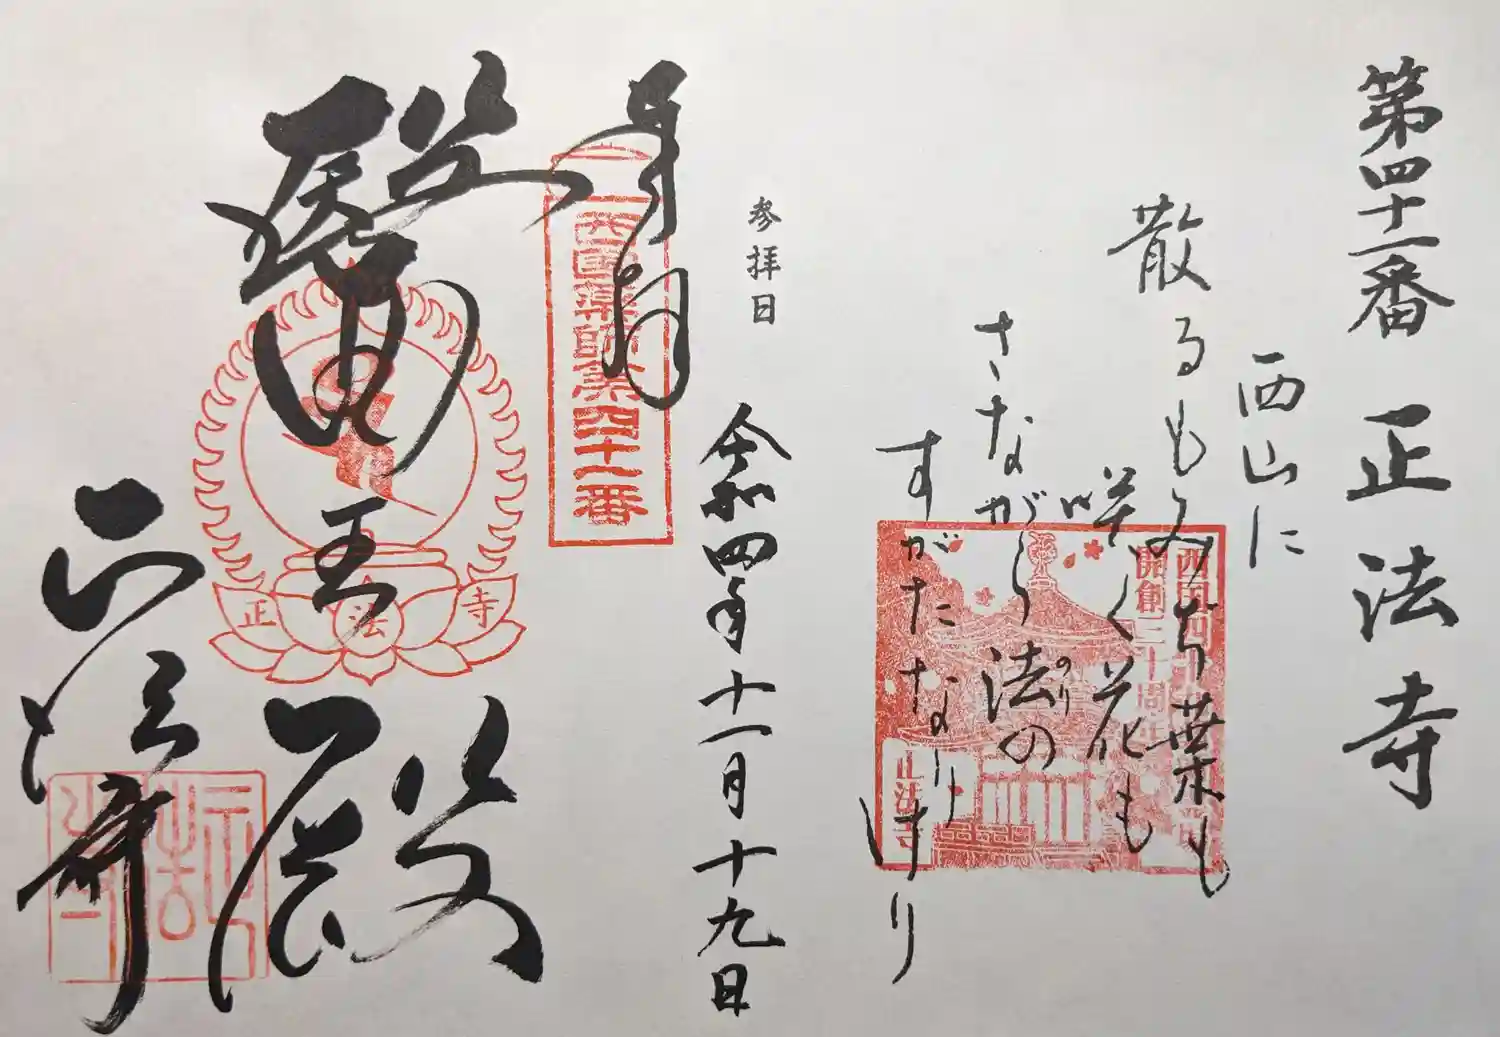 第四十一番 正法寺
西山に
散るもみぢ葉も
咲く花も
さながら法の
のり
すがたなりけり
西国四十
開創三十周年
正法寺
参拝日
令和四年十一月十九日
奉拝
西國薬師第四十一番
醫王殿
正法寺
正法寺